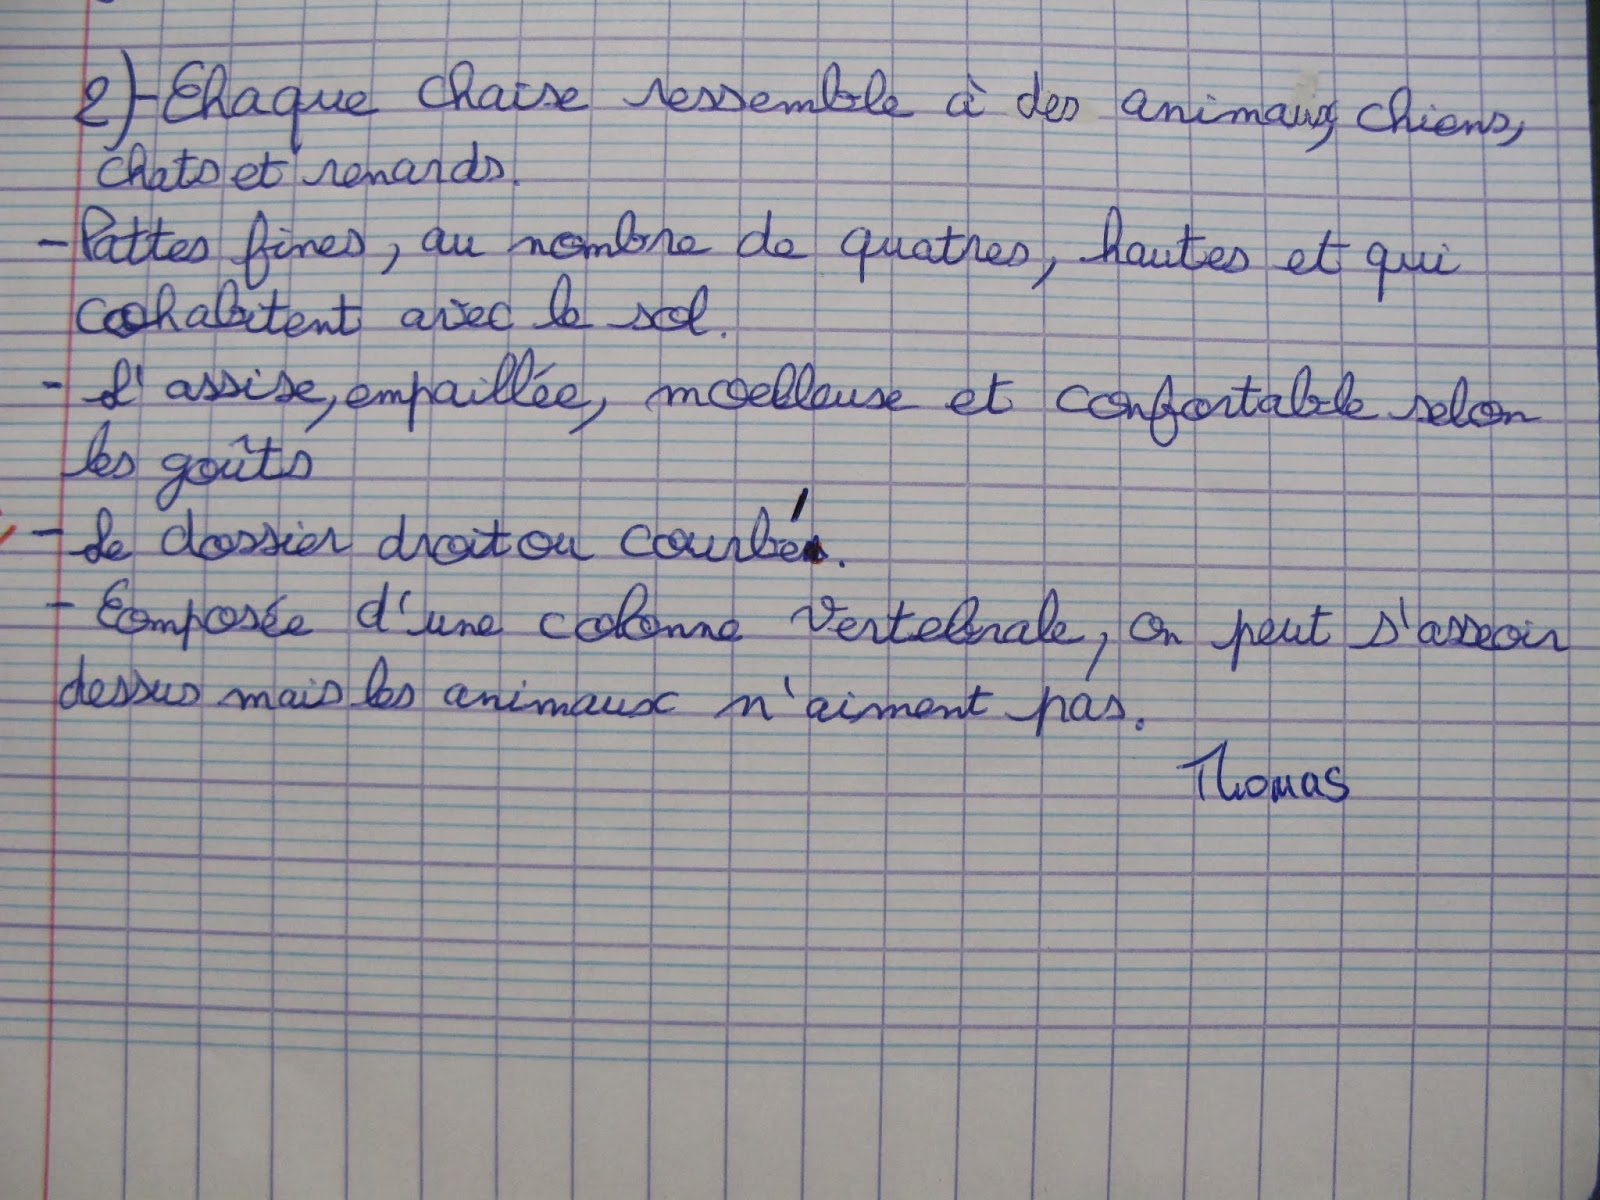 2)-Chaque chaise ressemble à des animaux, chiens,
chats et renards.
-Pattes fines, au nombre de quatres, hautes et qui
cohabitent avec le sol.
- L'assise, empaillée, moelleuse et confortable selon
les goûts
- Le dossier droit ou courbé.
- Composée d'une colonne vertebrale, on peut s'asseoir
dessus mais les animaux n'aiment pas.
Thomas